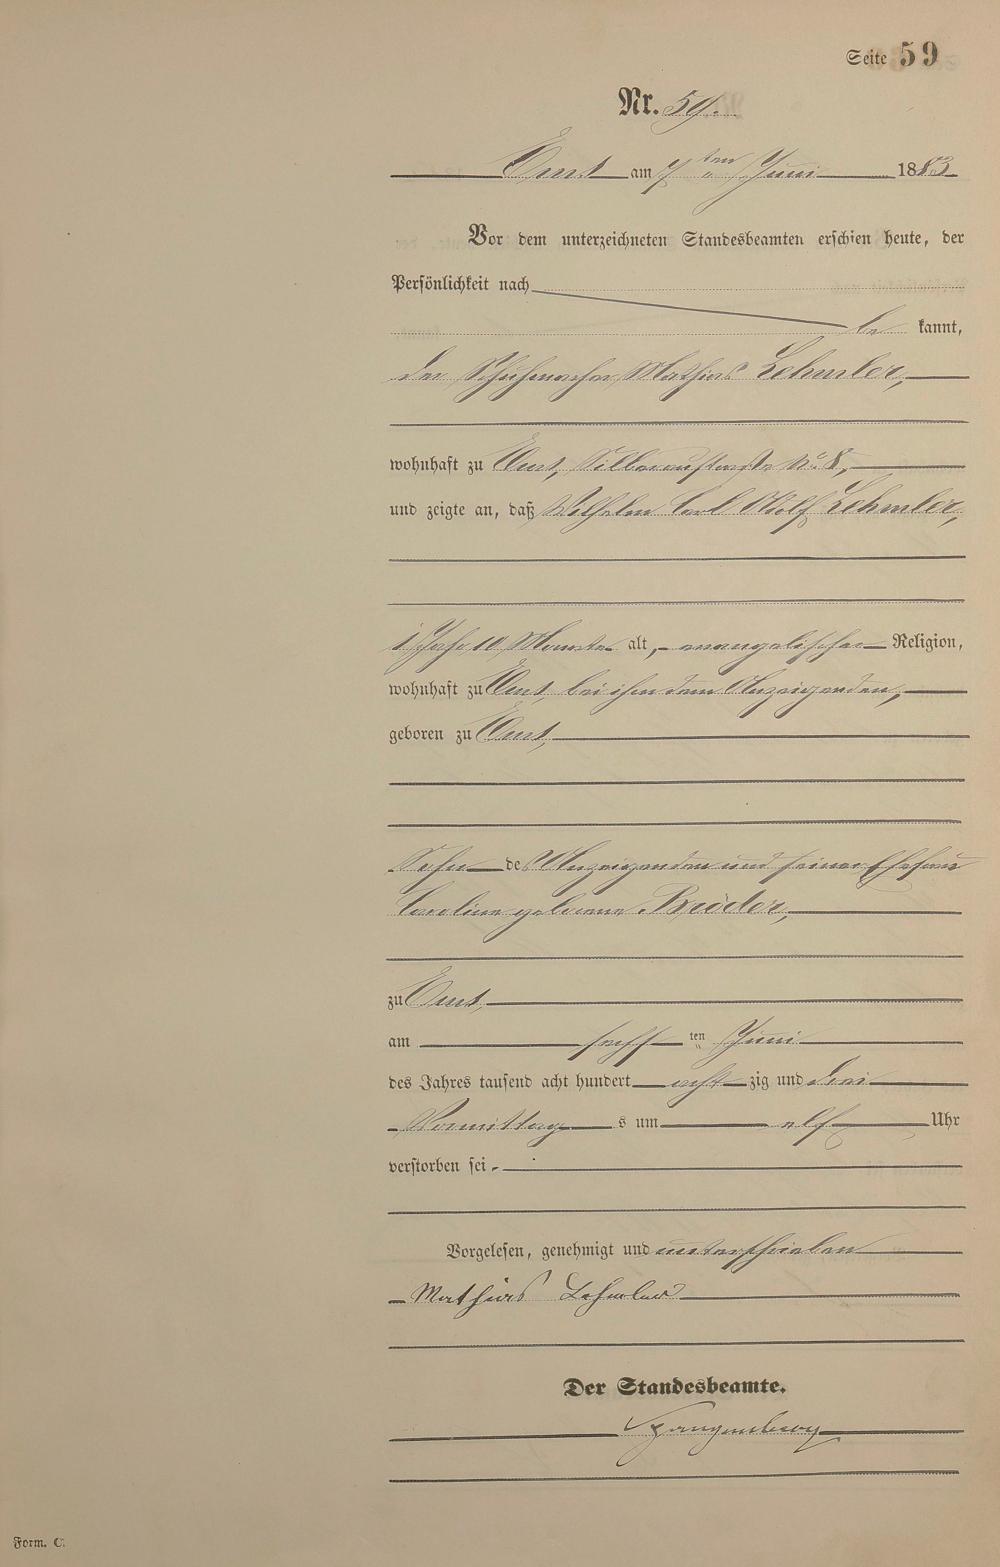 Seite 59
Nr. 59.
Ems am 7ten Juni 1883
Vor dem unterzeichneten Standesbeamten erschien heute, der
Persönlichkeit nach
be kannt,
der Schuhmacher Mathias Lehmler,
wohnhaft zu Ems, Silberaustraße No 8,
und zeigte an, daß Wilhelm Carl Adolf Lehmler,
1 Jahr 10 Monate alt, evangelischer Religion,
wohnhaft zu Ems, bei ihm dem Anzeigenden,
geboren zu Ems,
Sohn des Anzeigenden und seiner Ehefrau
Caroline geborene Bröder,
zu Ems,
am sechsten Juni
des Jahres tausend acht hundert acht zig und drei
Vormittag s um elf Uhr
verstorben sei.
Vorgelesen, genehmigt und unterschrieben
Mathias Lehmler
Der Standesbeamte.
Spangenberg
Form. C.